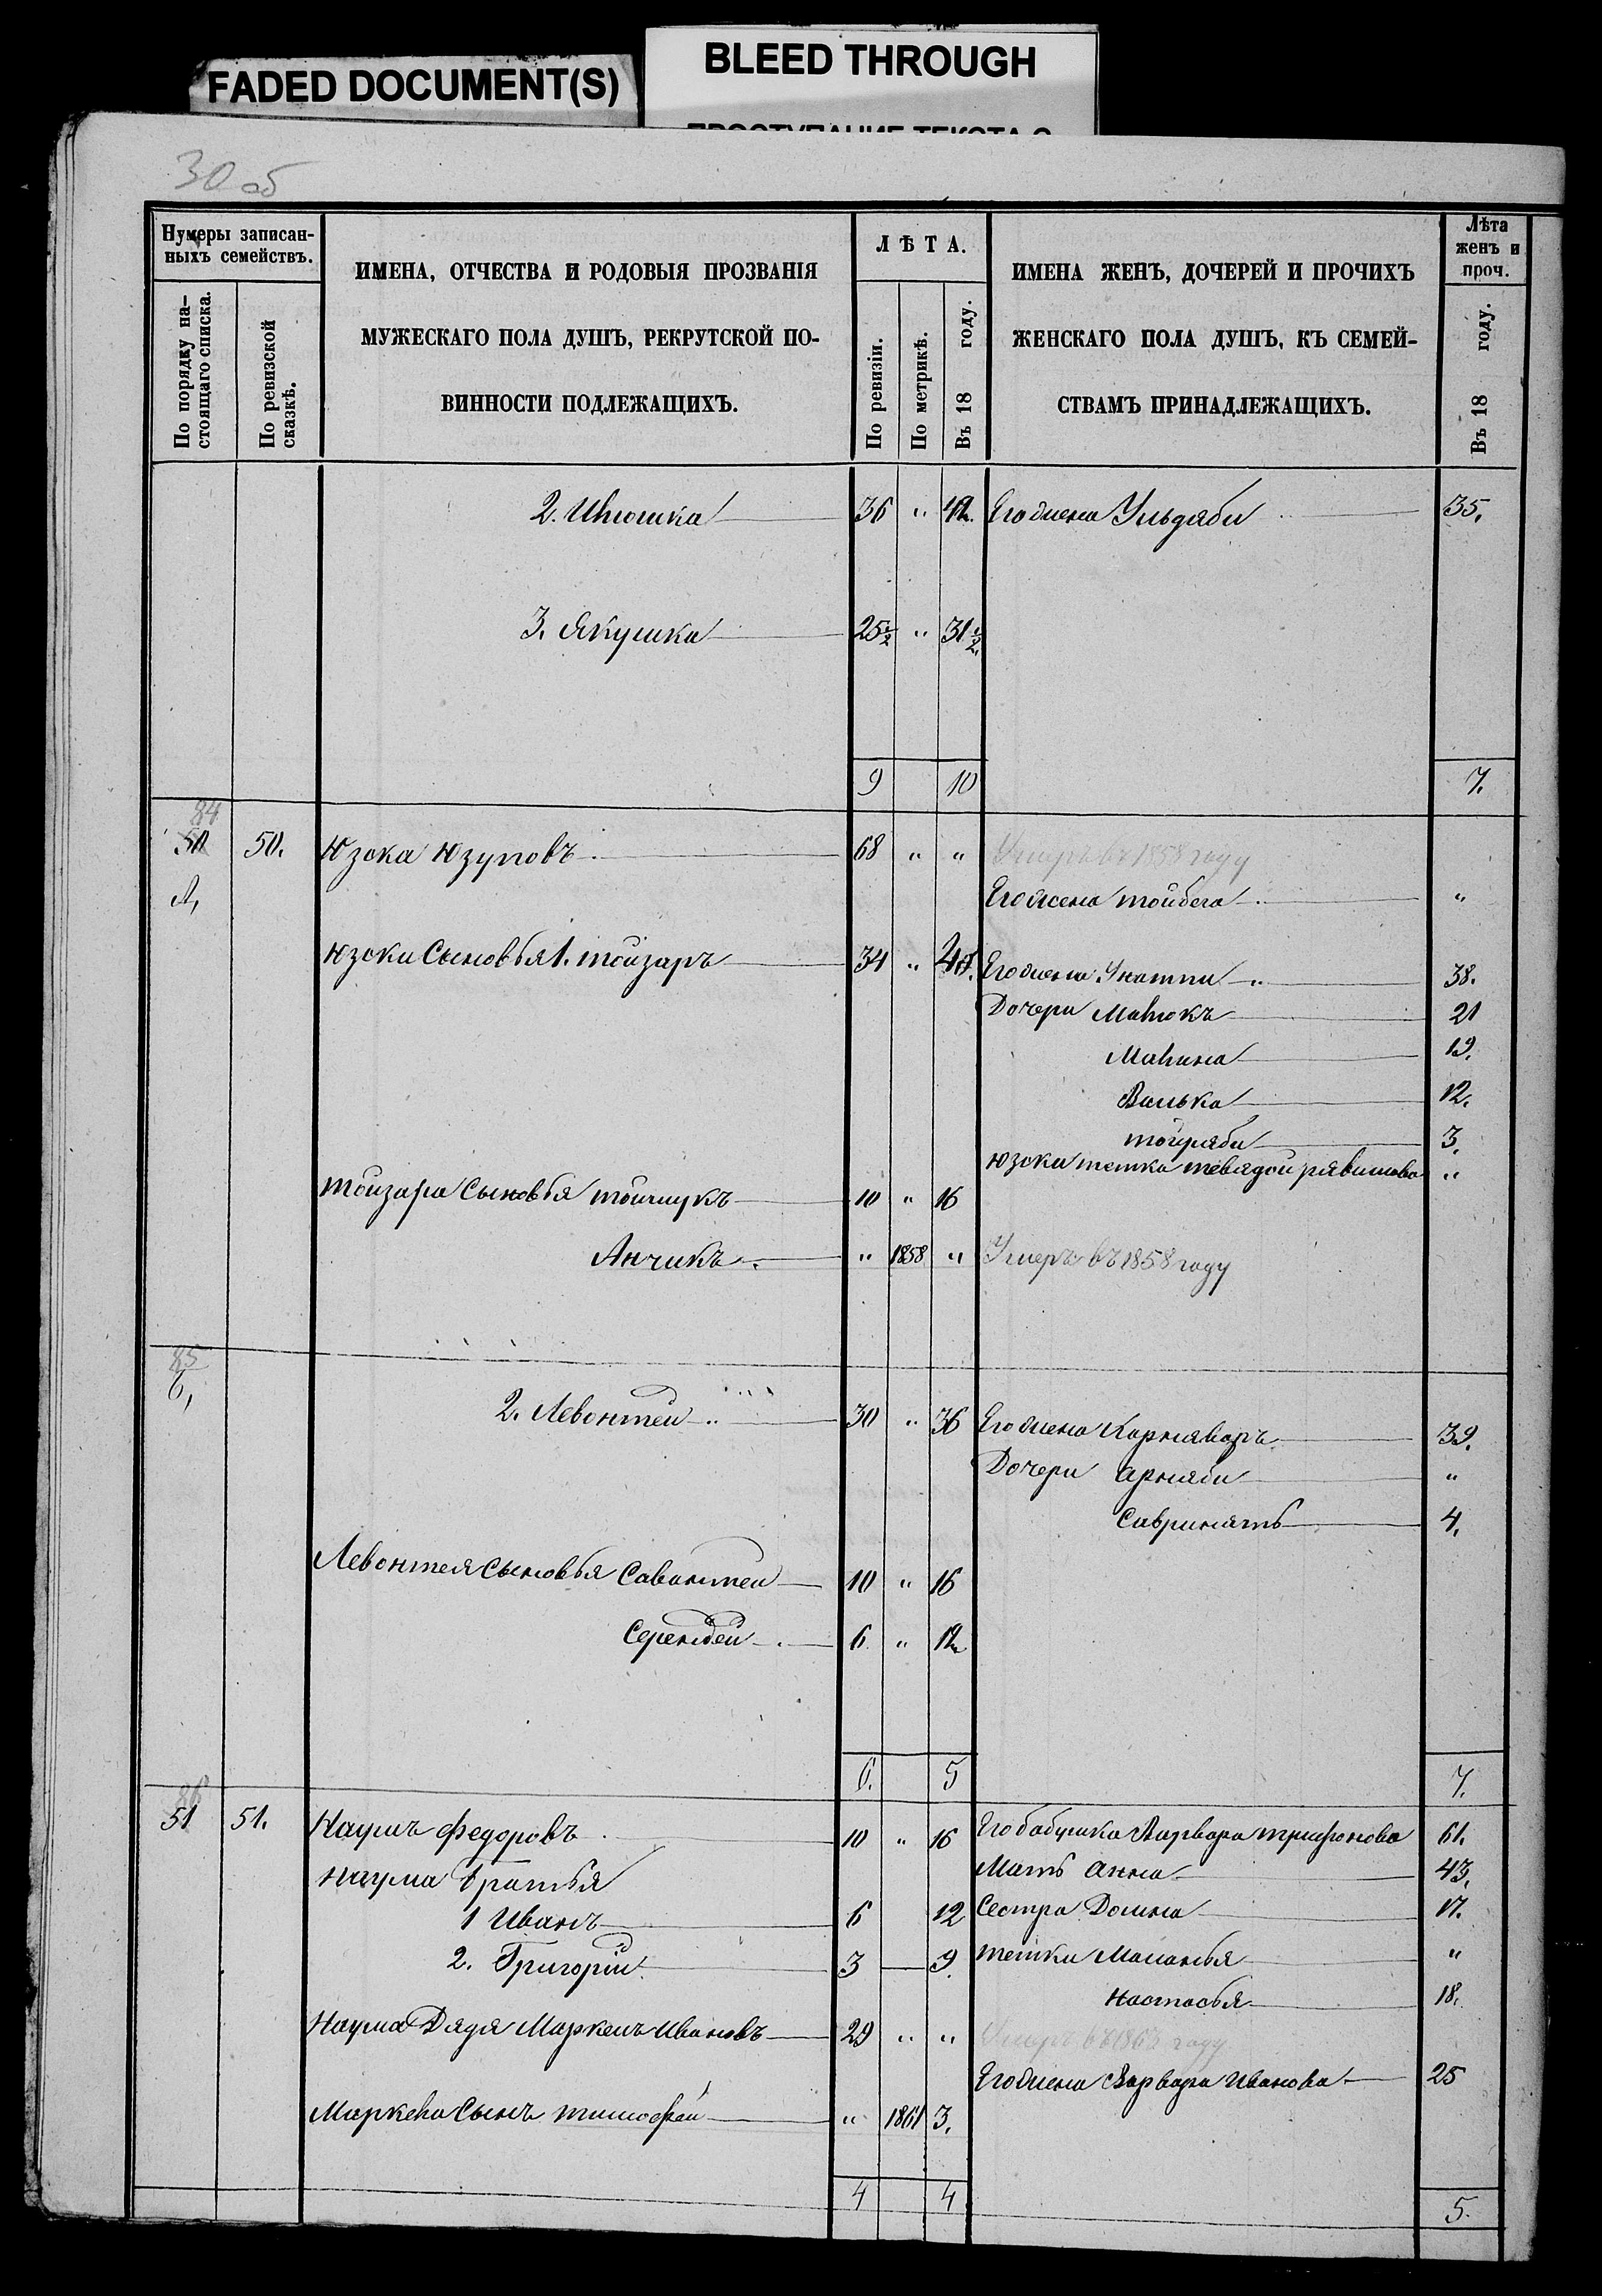 FADED DOCUMENT(S)
BLEED THROUGH
30 об
Нумеры записан-
ныхъ семействъ.
По порядку на-
стоящаго списка.
По ревизской
сказкѣ.
ИМЕНА, ОТЧЕСТВА И РОДОВЫЯ ПРОЗВАНІЯ
МУЖЕСКАГО ПОЛА ДУШЪ, РЕКРУТСКОЙ ПО-
ВИННОСТИ ПОДЛЕЖАЩИХЪ.
ЛѢТА.
По ревизіи.
По метрикѣ.
Въ 18 году.
ИМЕНА ЖЕНЪ, ДОЧЕРЕЙ И ПРОЧИХЪ
ЖЕНСКАГО ПОЛА ДУШЪ, КЪ СЕМЕЙ-
СТВАМЪ ПРИНАДЛЕЖАЩИХЪ.
Лѣта
женъ и
проч.
Въ 18 году.
2. 36 " 42. Его жена Ульдяби 35.
3. Якушка 25½ " 31½.
9 10 7.
84
50 50. Юзока Юзуповъ 68 " " Умеръ въ 1858 году
А, Его жена тойбега "
Юзоки Сыновья 1. тойзаръ 34 " 40. Его жена Унатпи 38.
Дочери 21
19.
Вилька 12.
3.
Юзоки тетка "
тойзара Сыновья 10 " 16
Анчикъ " 1858 " Умеръ въ 1858 году
85
б,
2. Левонтей 30 " 36 Его жена 39.
Дочери Арняби "
Савринять 4.
Левонтея Сыновья Савантей 10 " 16
Серендей 6 " 12
6. 5 7.
86
51 51. Наумъ Федоровъ 10 " 16 Его бабушка Варвара трифонова 61.
Наума братья Мать Анна 43.
1 Иванъ 6 12 Сестра Домна 17.
2. Григорій 3 — 9. тетки Маланья "
Настасья 18.
Наума Дядя Маркелъ Ивановъ 29 " " Умеръ въ году
Его жена Варвара Иванова 25
Маркела Сынъ тимофей " 1861 3.
4 4 5.